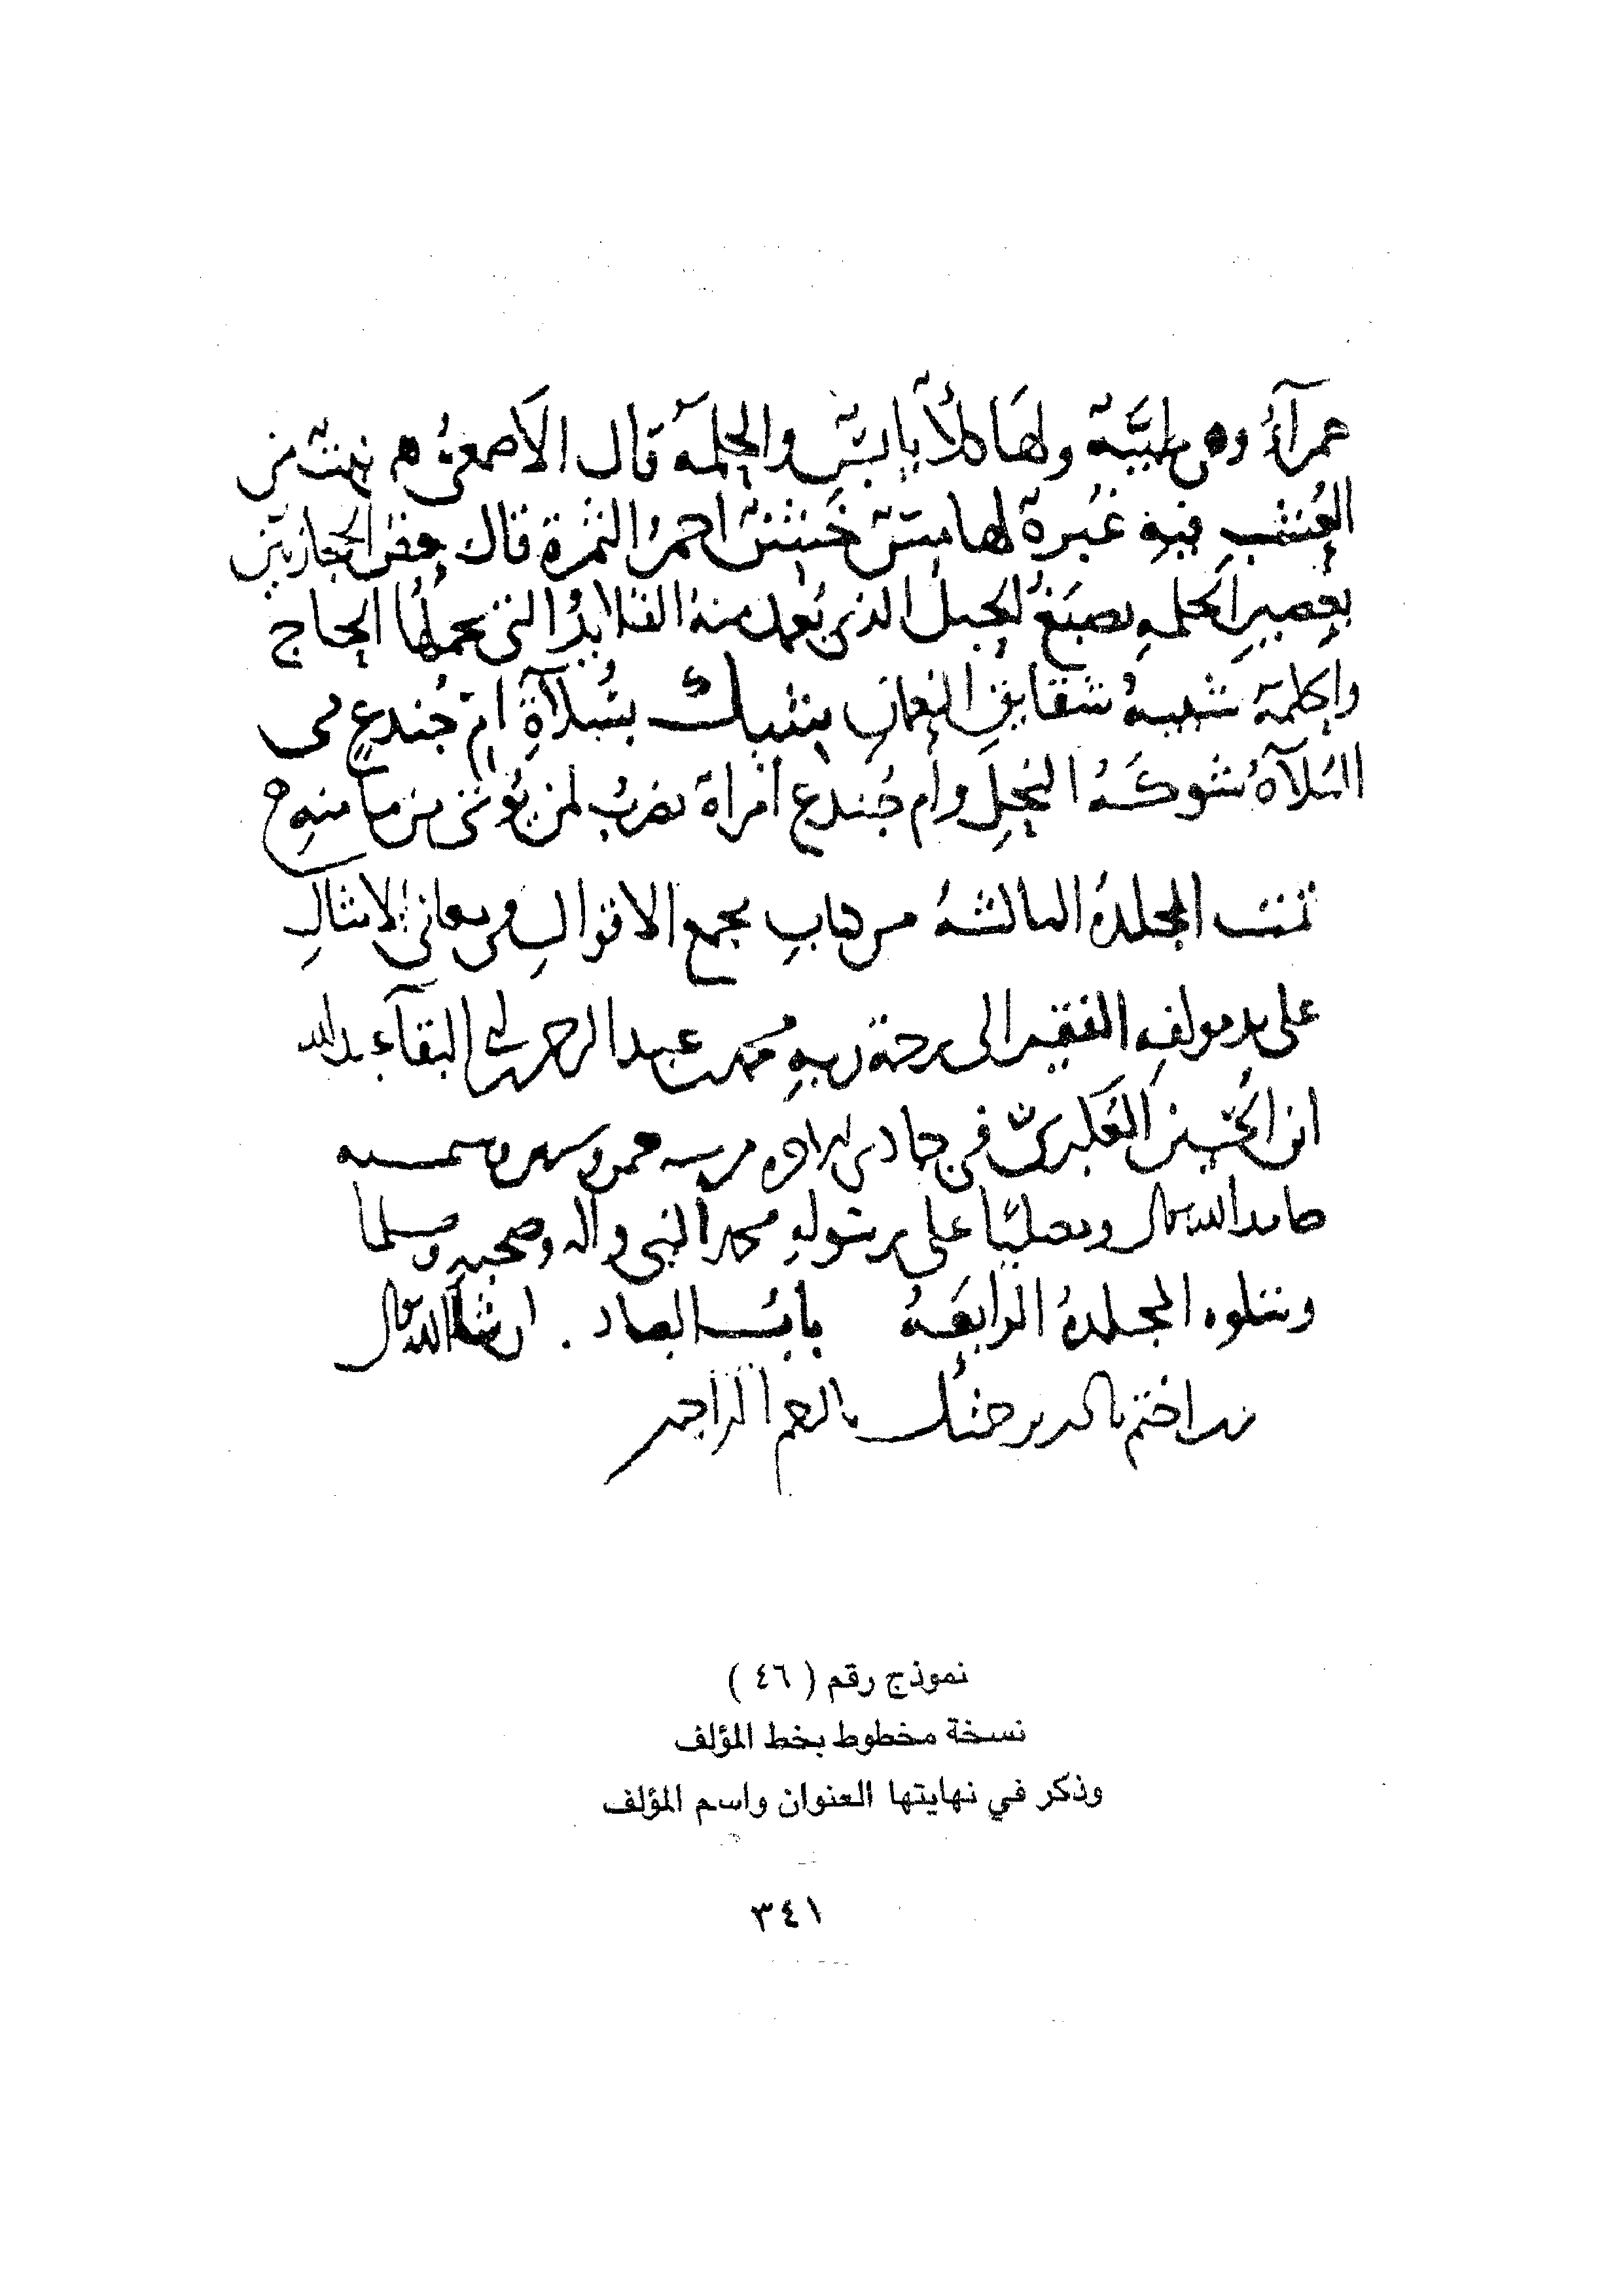 حمرآءُ وهي طيبة ولها كلأ يابس والحلمة قال الأصمعي هي نبت من
العُشب فيه غُبرة لها مس خَشن أحمرُ الثمرة قال بعض الحجازيين
بعصير الحلمه يصبغُ الحبلُ الذي يُعمل منهُ القلايدُ التي يحملها الحاج
والحلمة شبيهه شقايق النعمان
بسُلآةِ امّ جُندعٍ
السُلآةُ شوكهُ النخلِ وأم جُندع امراة يضربُ لمن يُوتى من مأمنه
تمت المجلدهُ الثالثهُ من كتاب مجمع الاقوال في معاني الامثال
على يد مولفه الفقير الى رحمة ربه محمد بن عبد الرحمن بن ابي البقآء عبد الله
ابن الحُسين العُكبريّ في جمادى من سنه وستمايه
حامدا لله تعالى ومصليًا على رسوله محمد النبي واله وصحبه ومسلما
وتتلوه المجلدهُ الرابعهُ بابُ الصاد . ان شا الله تعالى
اختم برحمتك يا ارحم الراحمين
نموذج رقم ( ٤٦ )
نسخة مخطوط بخط المؤلف
وذكر في نهايتها العنوان واسم المؤلف
٣٤١